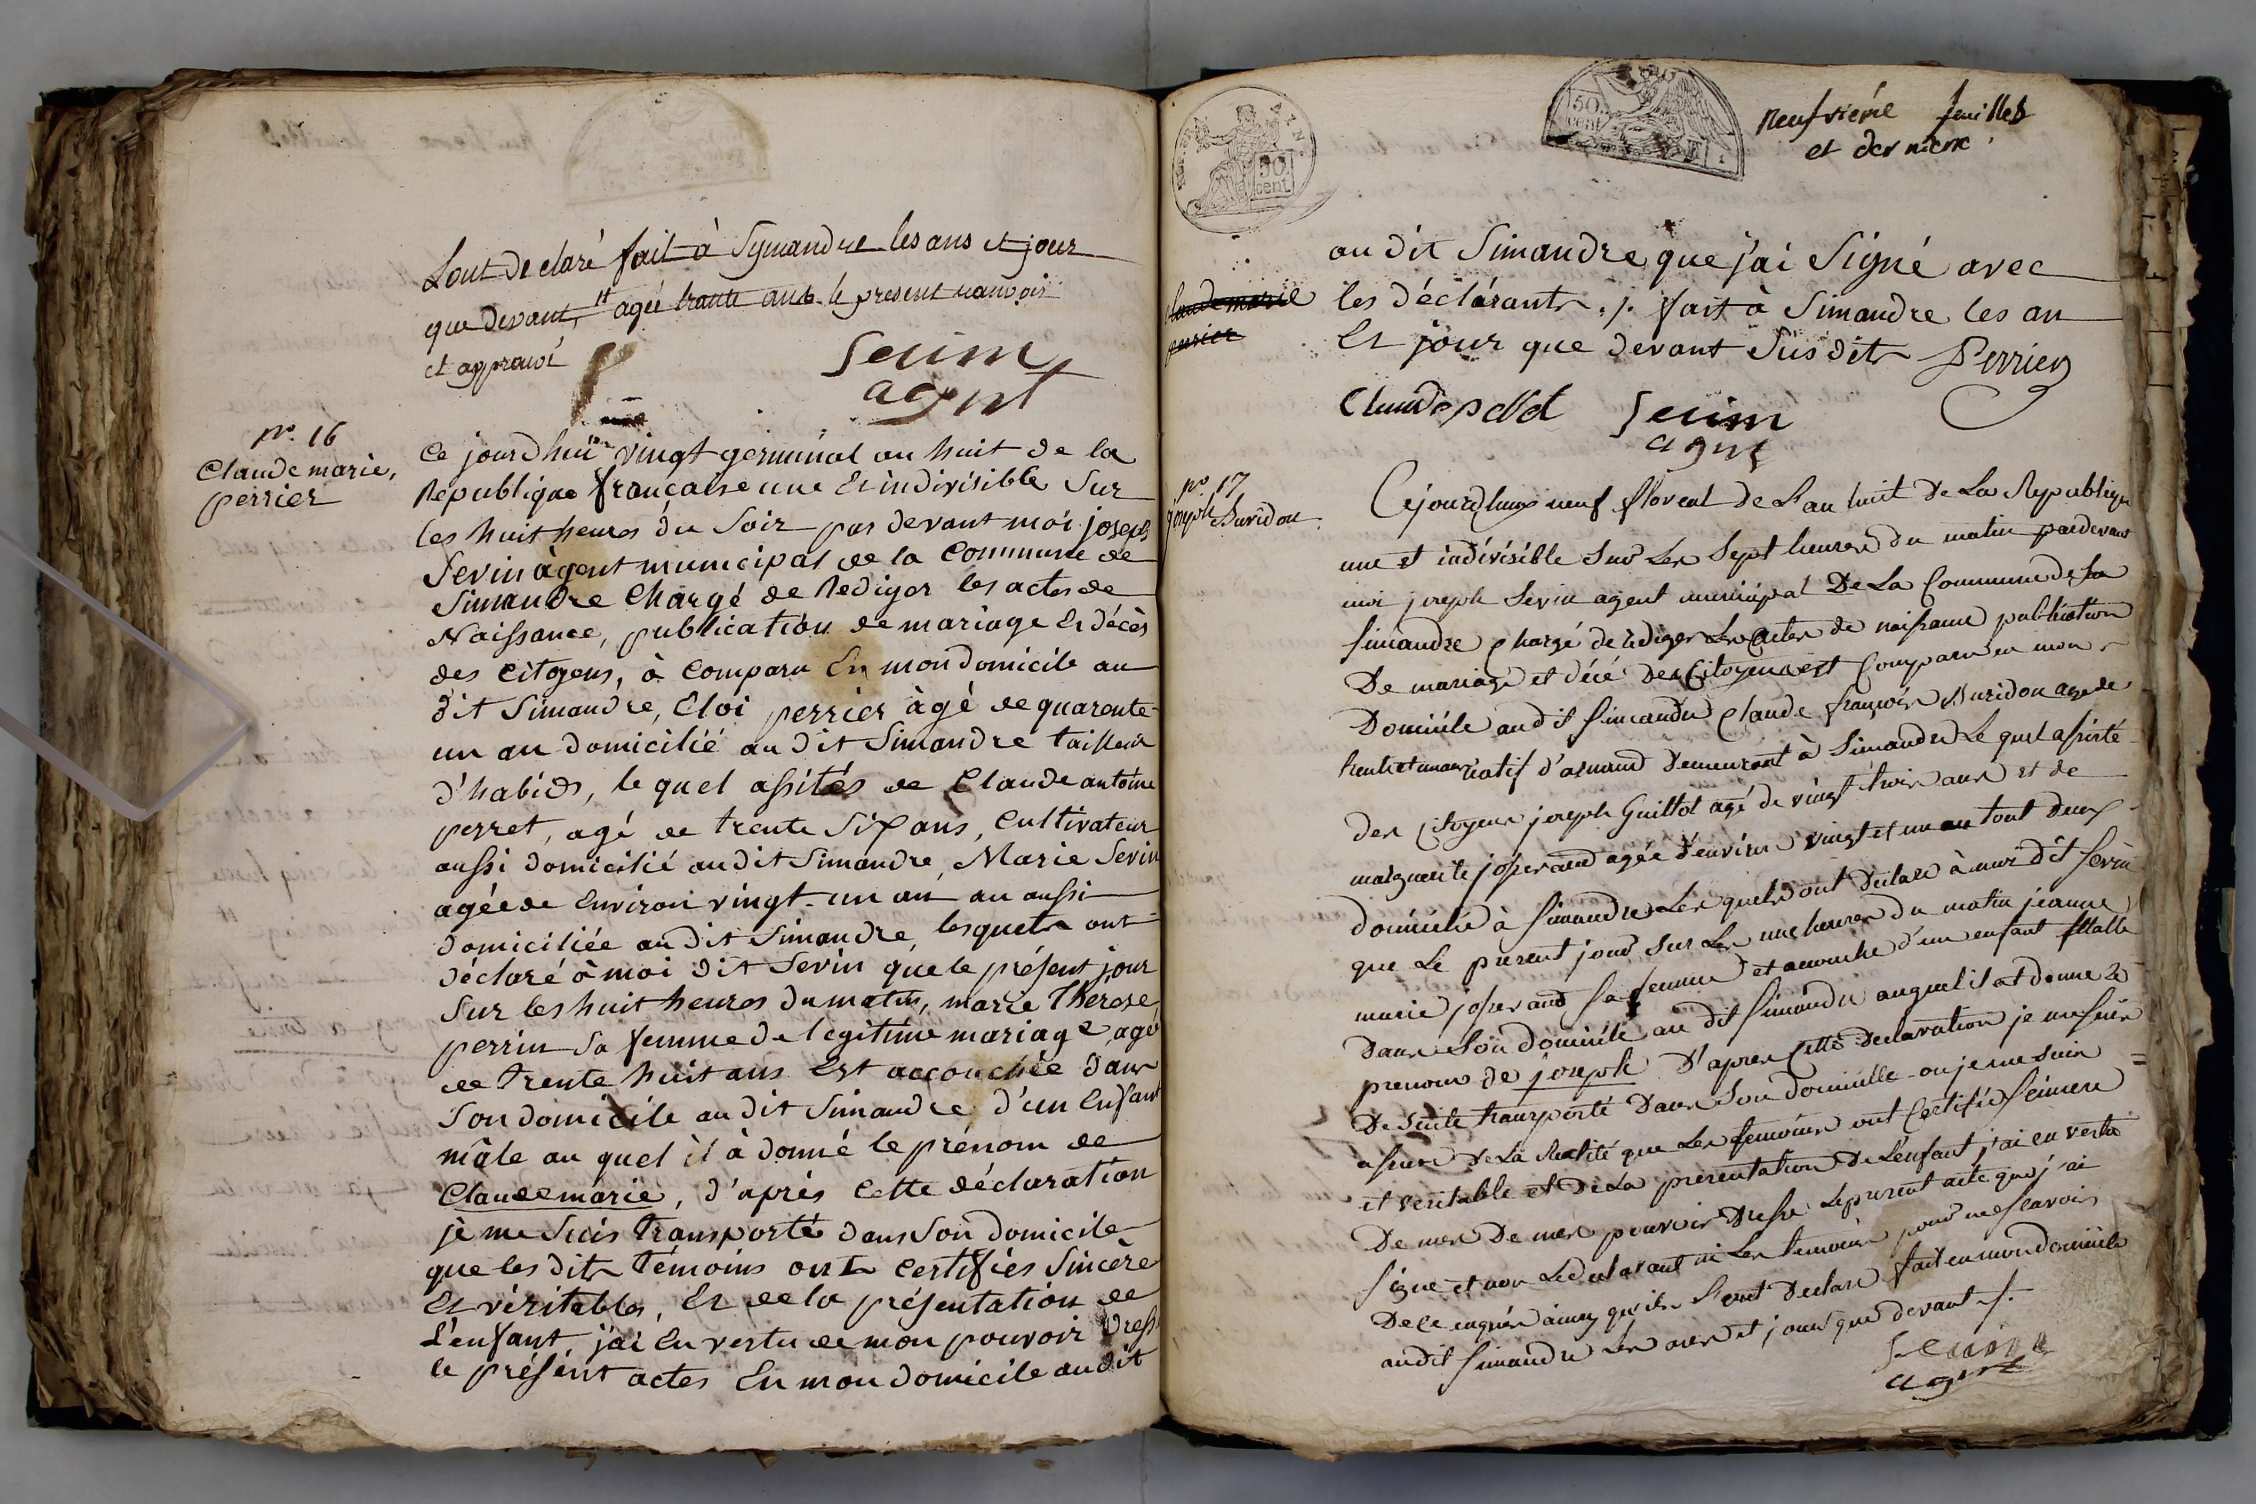 tout declaré fait à Symandre les ans et jour
que devant, et agée trante ans le present
et approuvé
Sevin
agent
no. 16
Claude marie,
perrier
Ce jourdhui vingt germinal an huit de la
Republique française une Et indivisible Sur
les huit heures du Soir par devant moi joseph
Sevin àgent municipal de la Commune de
Simandre Chargé de Rediger les actes de
Naissance, publication de mariage Et décès
des Citoyens, à Comparu En mon domicile au
dit Simandre, Eloi perrier àgé de quarente
un an domicilié au dit Simandre tailleur
d'habids, le quel assités de Claude antoine
perret, agé de trente Six ans, Cultivateur
aussi domicilié audit Simandre, Marie Sevin
agée de Environ vingt-un an au aussi
domiciliée au dit Simandre, lesquels ont
déclaré à moi dit Sevin que le présent jour
Sur les huit heures du matin, marie Therese
perrin Sa femme de legitime mariage, agé
de trente huit ans Est accouchée dans
Son domicile au dit Simandre d'un Enfant
mâle au quel il à donné le prénom de
Claude marie, d'après Cette déclaration
je me Suis transporté dans Son domicile
que les dits témoins ont certifiés Sincère
Et véritables, Et de la présentation de
L'enfant j'ai En vertu de mon pouvoir dressé
le présent actes En mon domicile audit
50 cent
50 cent
neufvieme feuillet
et derniere.
au dit Simandre que j'ai Signé avec
Claude marie
perrier
les déclarants ./. fait à Simandre les an
Et jour que devant Susdits Perrier
Claude Sevin
agent
no. 17
joseph Buridon.
Cejourdhuy neuf floreal de L'an huit de La Republique
une et indivisible Sur Les Sept heures du matin pardevant
moi joseph Sevin agent municipal De La Commune de
Simandre Chargé de rediger Les actes de naissance publication
De mariage et décé Des Citoyens est Comparu en mon
Domicile audit Simandre Claude françois Buridon agé de
trente et un an natif d'arnand demeurant à Simandre Le quel assisté
Des Citoyens joseph Guillot agé de vingt trois ans et de
marguerite josserand agée d'environ vingt et un an tout deux
domicilié à Simandre Les quels ont declaré à moi dit Sevin
que Le present jour Sur Les une heures du matin jeanne
marie josserand Sa femme et accouché d'un enfant Malle
Dans Son domicile au dit Simandre auquel il at donné Le
prenom de joseph D'apres Cette Declaration je me Suis
De Suite transporté Dans Son domicille ou je me Suis
assuré De La Realité que Les temoins ont Certifié Sincere
et veritable et De La presentation De L'enfant j'ai en vertu
De mes De mes pouvoir Dressé Le present acte que j'ai
Signé et non Le declarant ni Les temoins pour ne Savoir
De ce enquis ainsy qu'ils L'ont Declaré fait en mon domicile
audit Simandre Les ans et jour que devant ./.
Sevin
agent